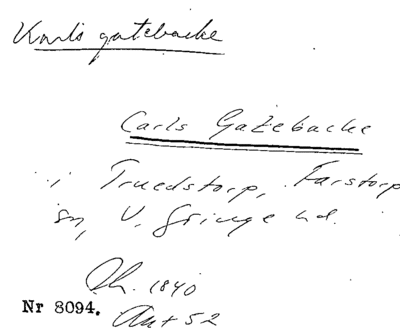 Karls gatebacke
Carls Gatebacke
i Truedstorp, Farstorp
sn, V. Göinge hd.
Ch. 1840
Nr 8094.
Ant 52